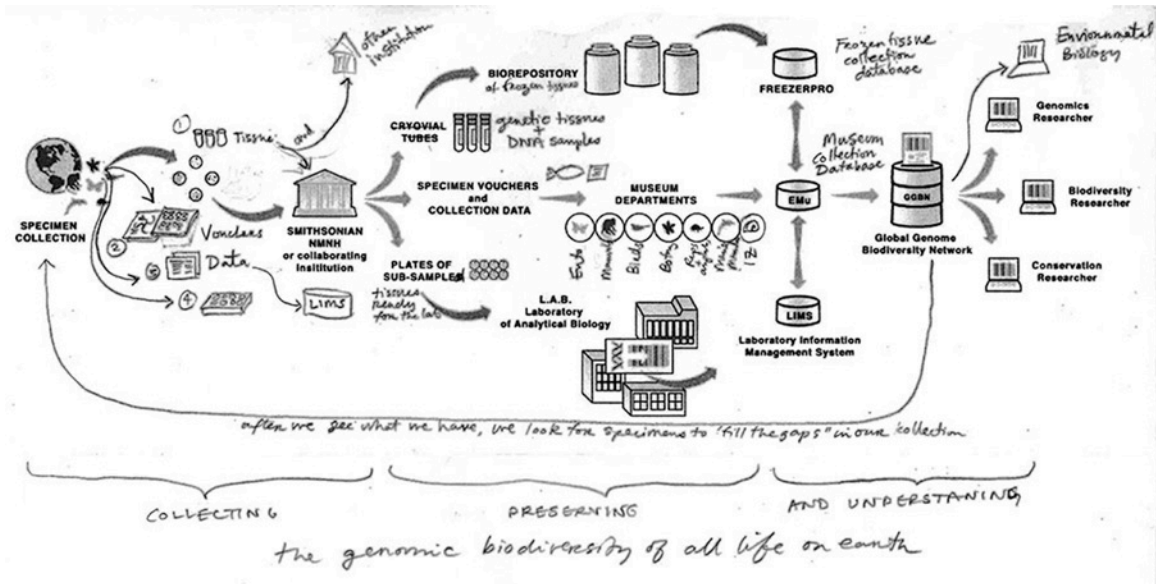 SPECIMEN
COLLECTION
①
Tissue
②
Vouchers
③
Data
④
LIMS
and
other
institution
SMITHSONIAN
NMNH
or collaborating
Insititution
BIOREPOSITORY
of frozen tissues
CRYOVIAL
TUBES
genetic tissues
+
DNA samples
SPECIMEN VOUCHERS
and
COLLECTION DATA
PLATES OF
SUB-SAMPLES
tissues
ready
for the lab
MUSEUM
DEPARTMENTS
Ento
Birds
Botany
IZ
L.A.B.
Laboratory
of Analytical Biology
FREEZERPRO
Frozen tissue
collection
database
Museum
Collection
Database
EMu
LIMS
Laboratory Information
Management System
GGBN
Global Genome
Biodiversity Network
Environmental
Biology
Genomics
Researcher
Biodiversity
Researcher
Conservation
Researcher
after we see what we have, we look for specimens to "fill the gaps" in our collection
COLLECTING
PRESERVING
AND UNDERSTANING
the genomic biodiversity of all life on earth